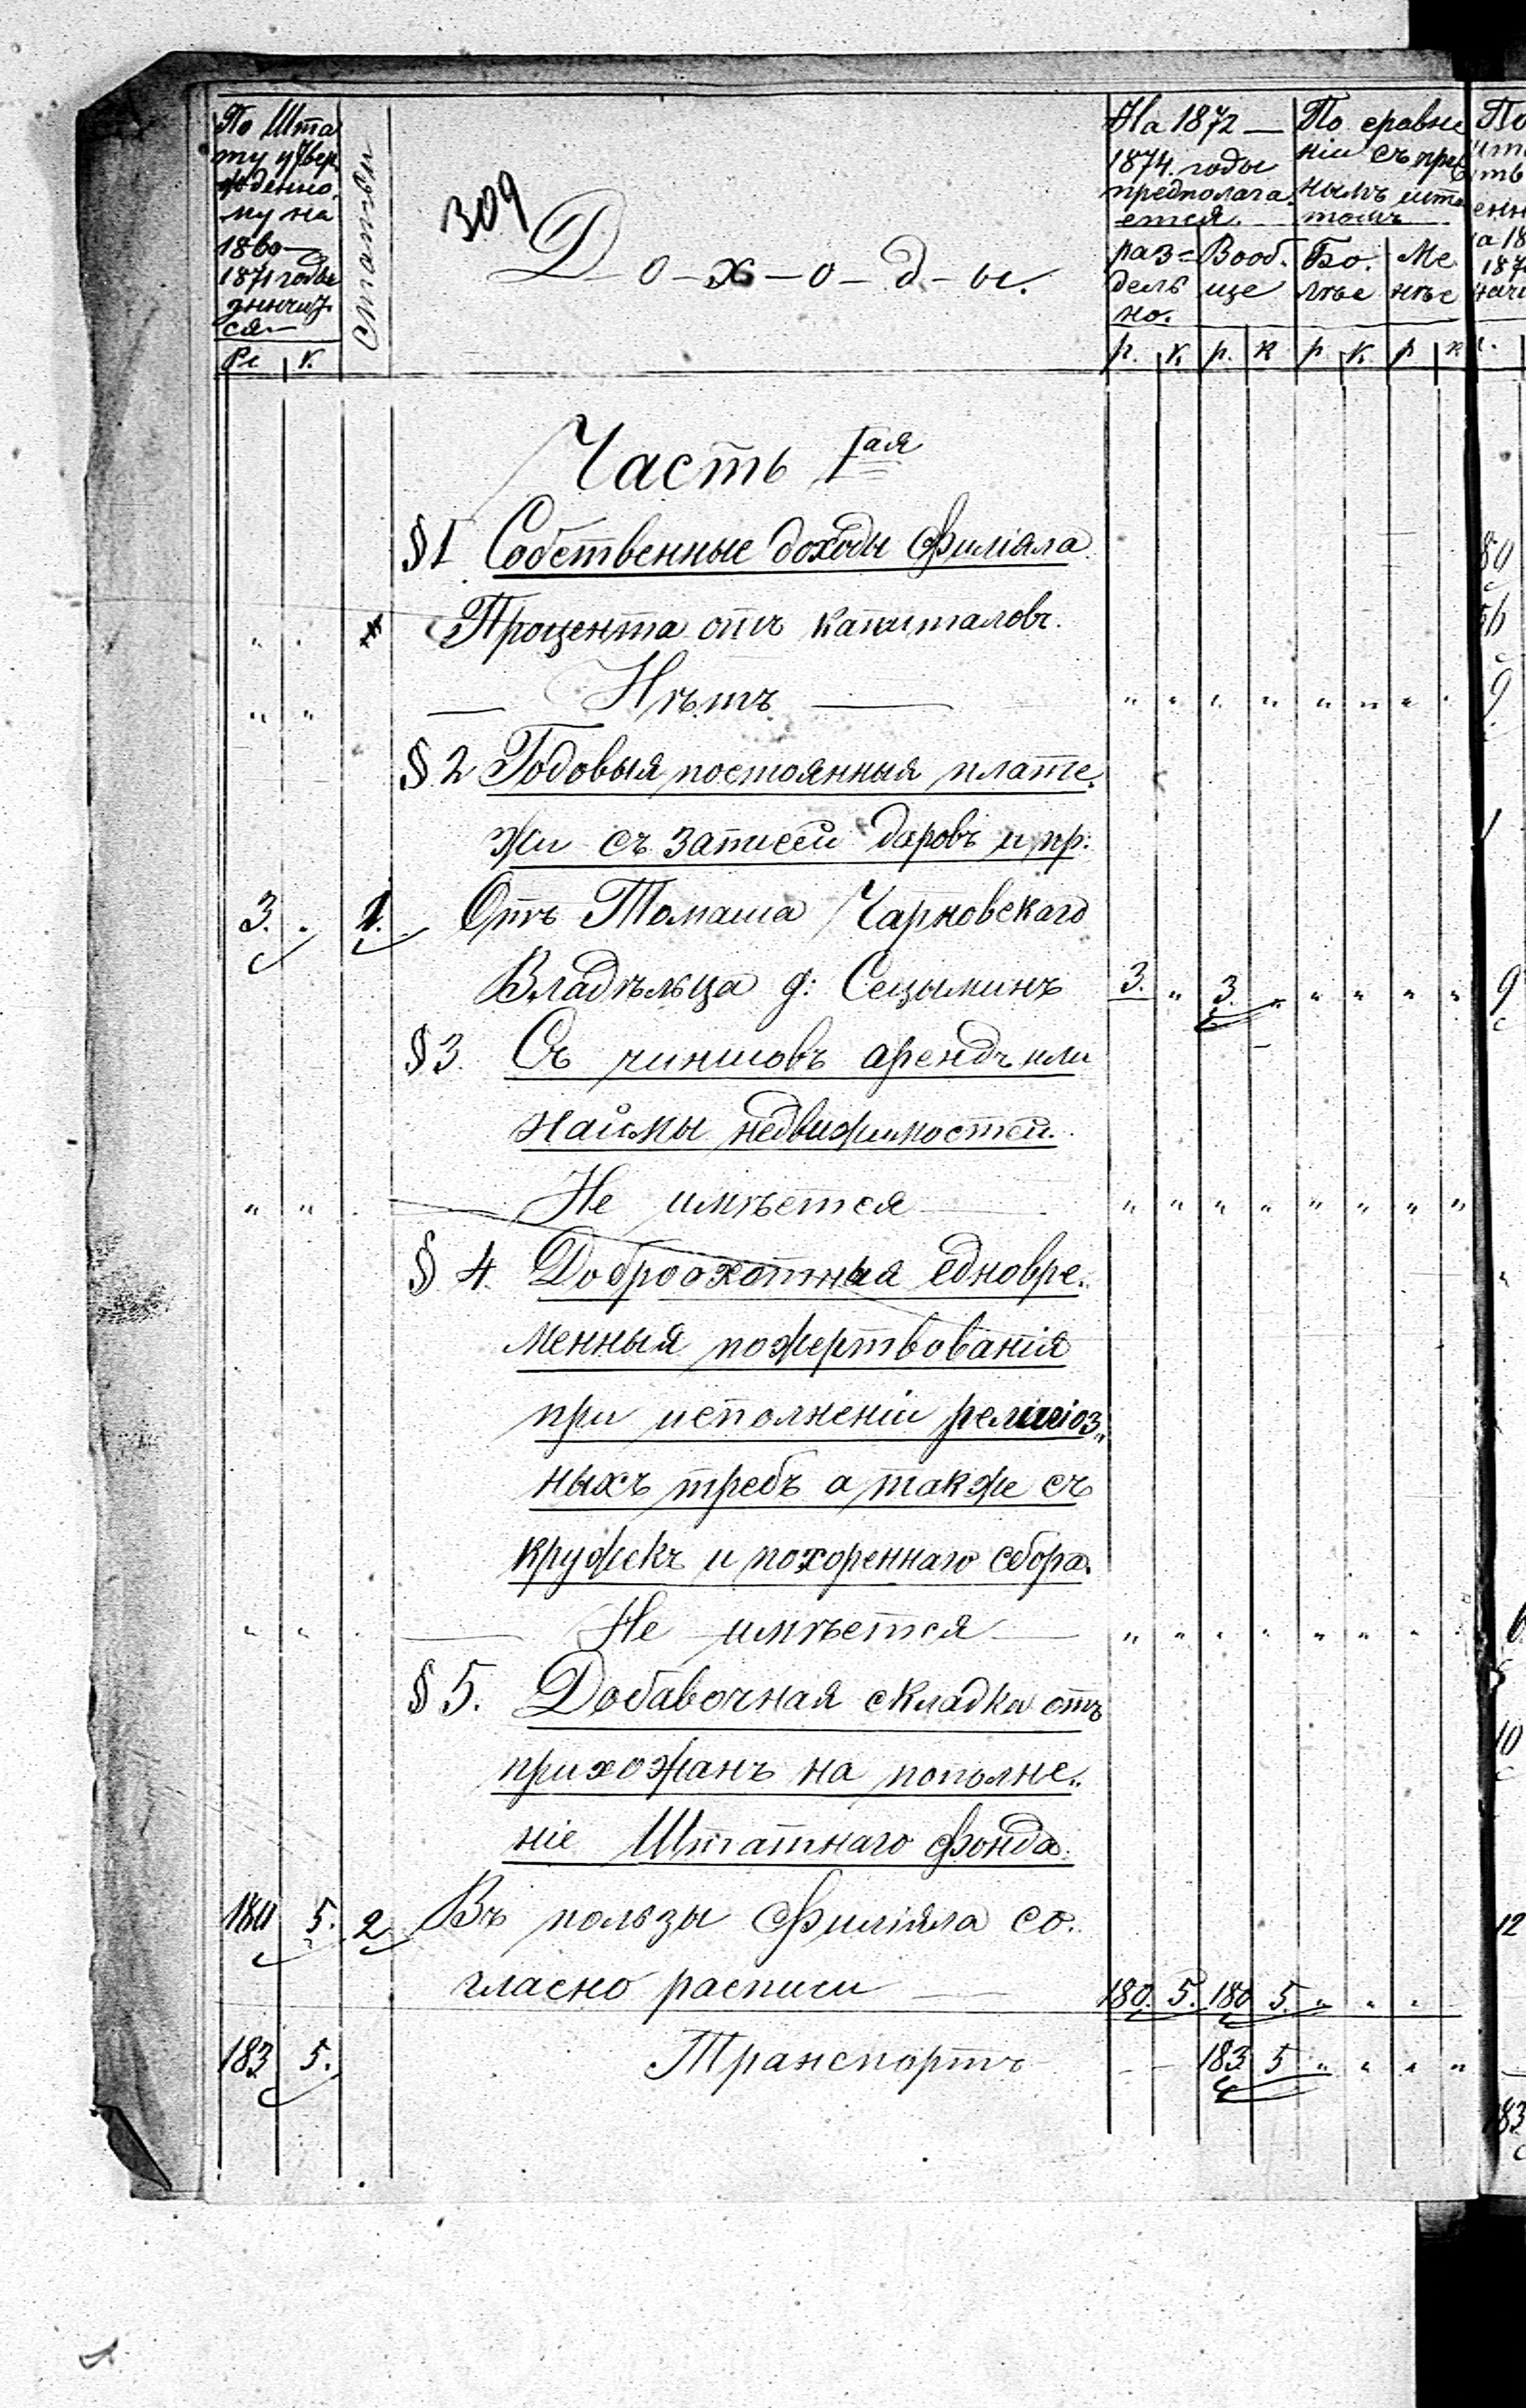 По Шта
ту утвер
жденно
му на
1869 —
1871 годы
значит.
ся —
Рс к.
Статьи
309
Д-о-х-о-д-ы.
На 1872 —
1874. годы
предполага.
ется.
раз= Вооб.
дель ще
но.
По сравне
ніи съ пре
нымъ шта
томъ
Бо. Ме
лѣе нѣе
р. к. р. к р к. р к
Часть Iая
§ 1 Собственные доходы Филіяла
Процента отъ капиталовъ.
" " — Нѣтъ — " " " " " " " "
§ 2 Годовыя постоянныя плате.
жи съ записей даровъ и пр:
3. . 1. Отъ Томаша Чарновскаго
Владѣльца д: Сецыминъ 3. " 3. " " " " "
§ 3. Съ чиншовъ арендъ или
наймы недвижимостей.
" " — Не имѣется — " " " " " " " "
§ 4. Доброохотныя едновре.
менныя пожертвованія
при исполненіи религіоз„
ныхъ требъ а также съ
кружкъ и похореннаго сбора.
" " — Не имѣется — " " " " " " "
§ 5. Добавочная складка отъ
прихожанъ на пополне„
ніе Штатнаго Фонда.
180 5. 2 Въ пользы Филіяла со.
гласно расписи — 180. 5. 180 5. " " "
183 5. Транспортъ — — 183 5 " " " "